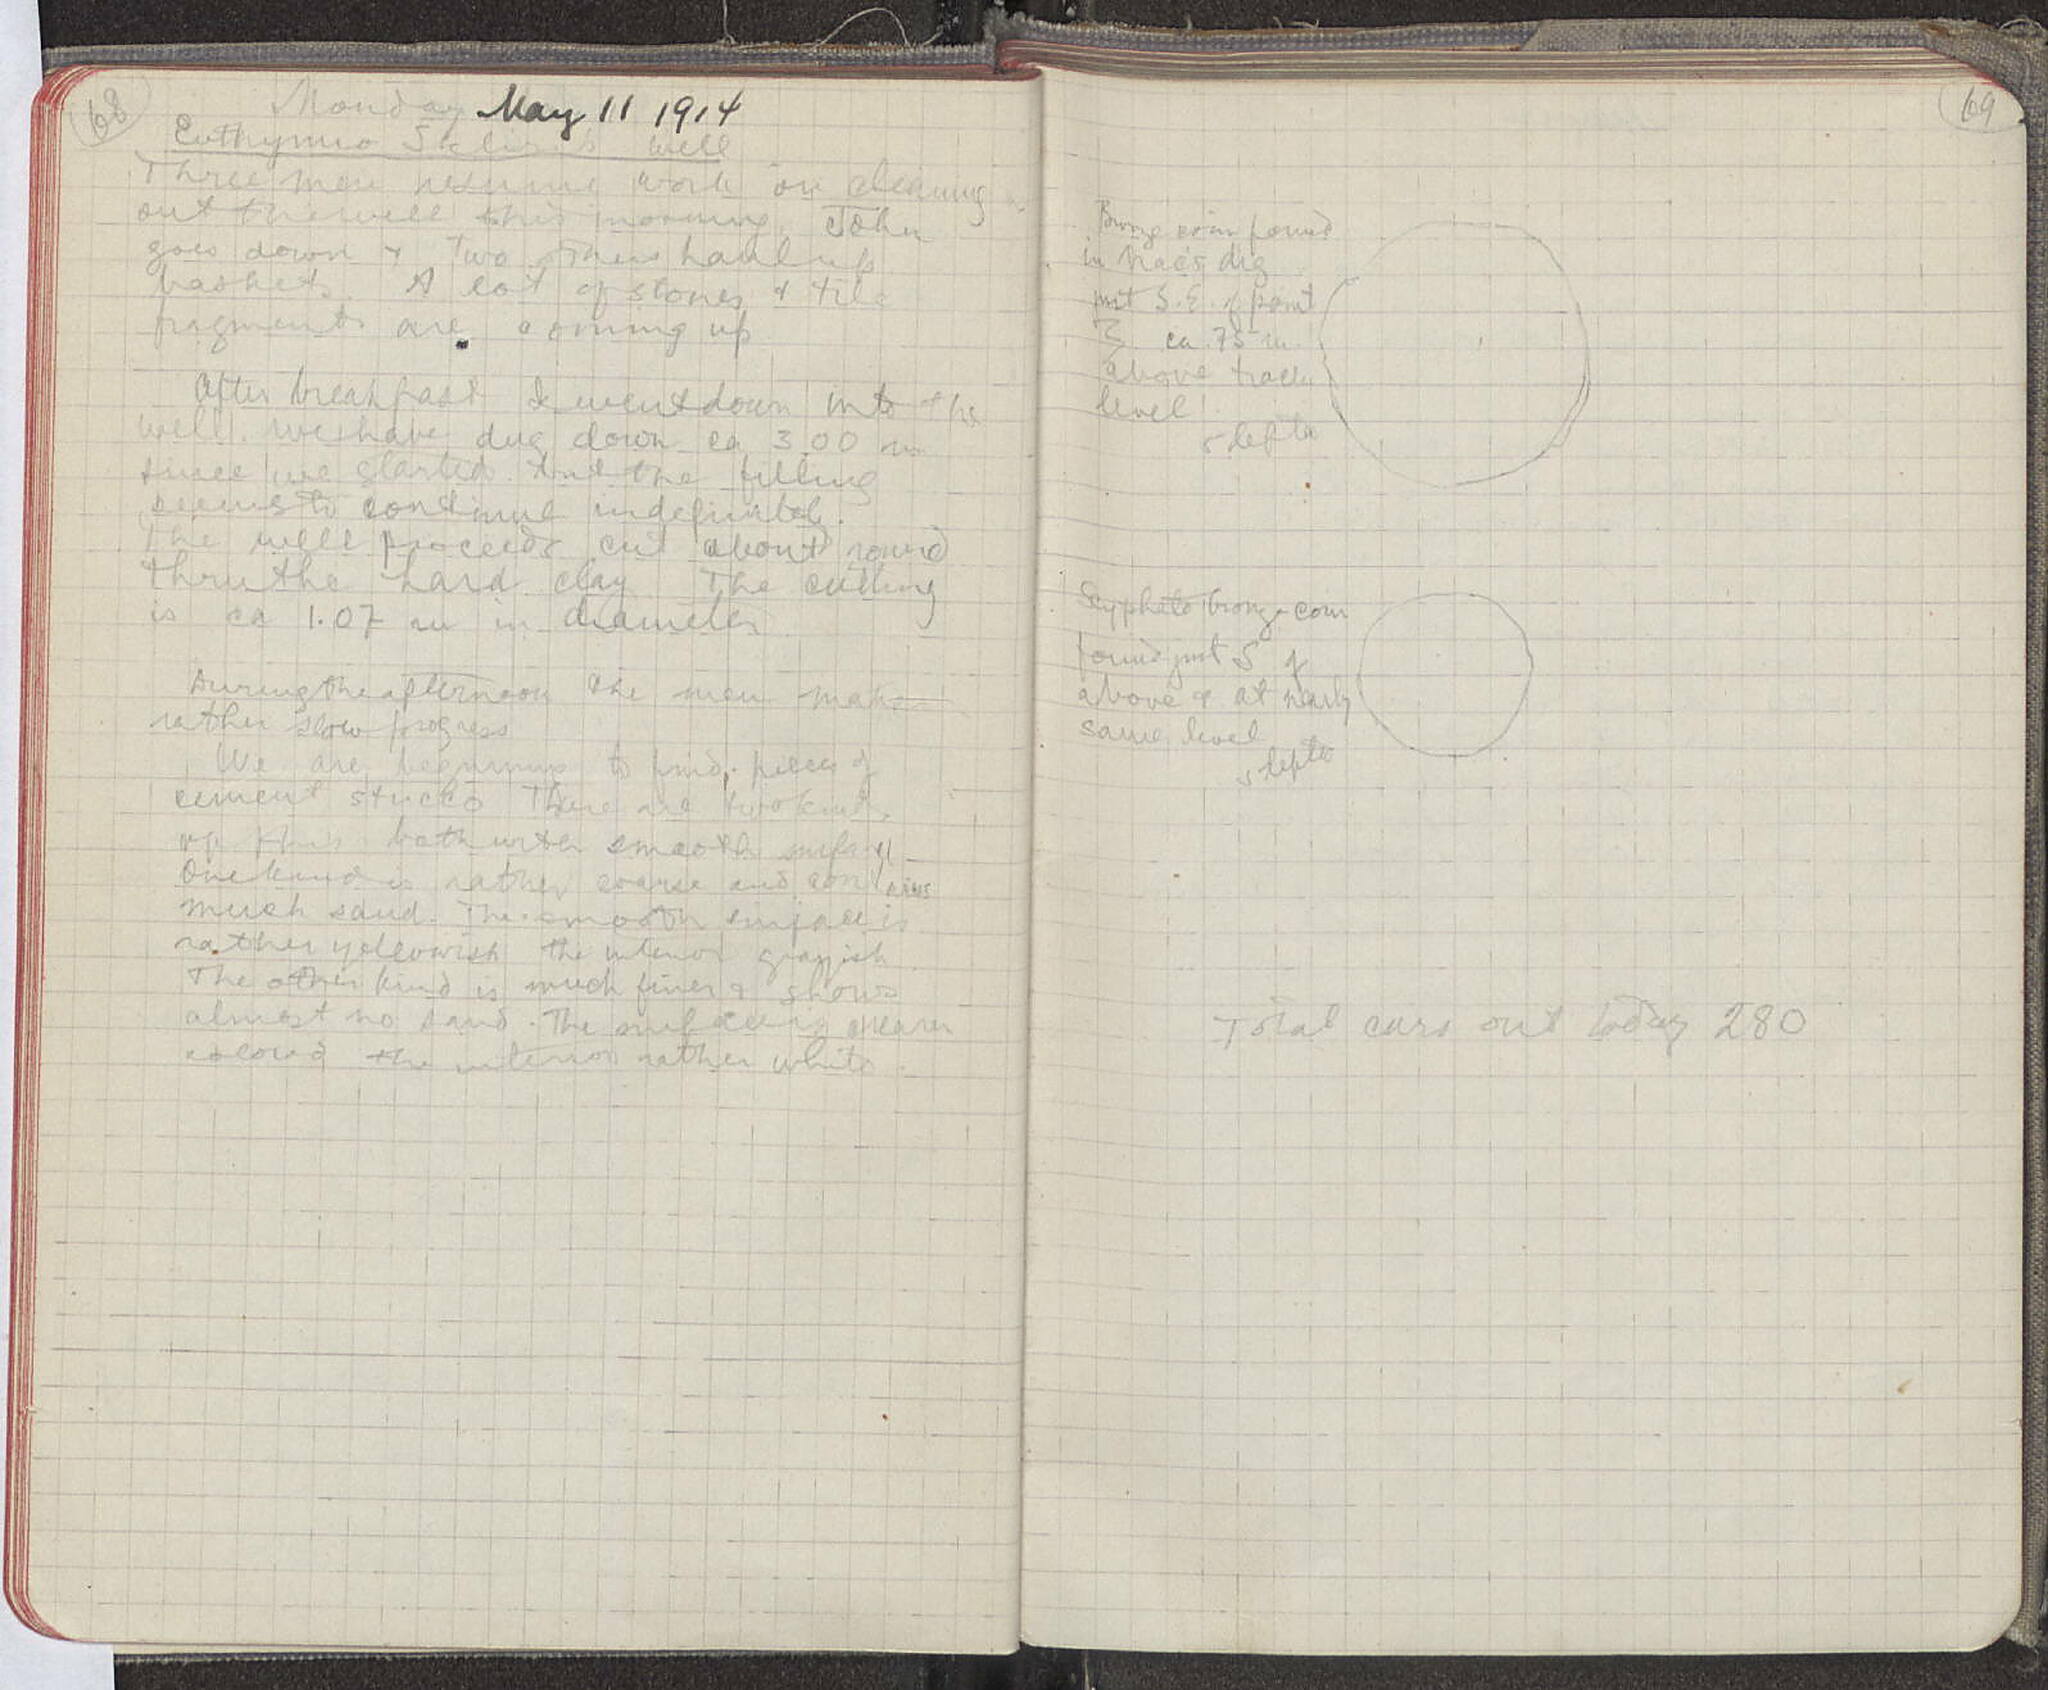 68
Monday May 11 1914
Euthymio well
Three men resume work on cleaning
out the well this morning. John
goes down & two others haul up
baskets. A lot of stones & tile
fragments are coming up
After breakfast I went down into the
well. We have dug down ca 3.00 m
since we started and the filling
seems to continue indefinitely.
The well proceeds cut about round
thru the hard clay The cutting
is ca 1.07 m in diameter
During the afternoon the men make
rather slow progress
We are beginning to find pieces of
cement stucco There are two kinds
of this both with smooth surface
One kind is rather coarse and contains
much sand. The smooth surface is
rather yellowish the interior grayish
The other kind is much finer & shows
almost no sand. The surface is cream
colored the interior rather white.
69
Bronze coin found
in dig
just S.E. of point
ca .75 m
above track
level
5 lepta
Scyphate bronze coin
found just S of
above & at nearly
same level
5 lepta
Total cars out today 280